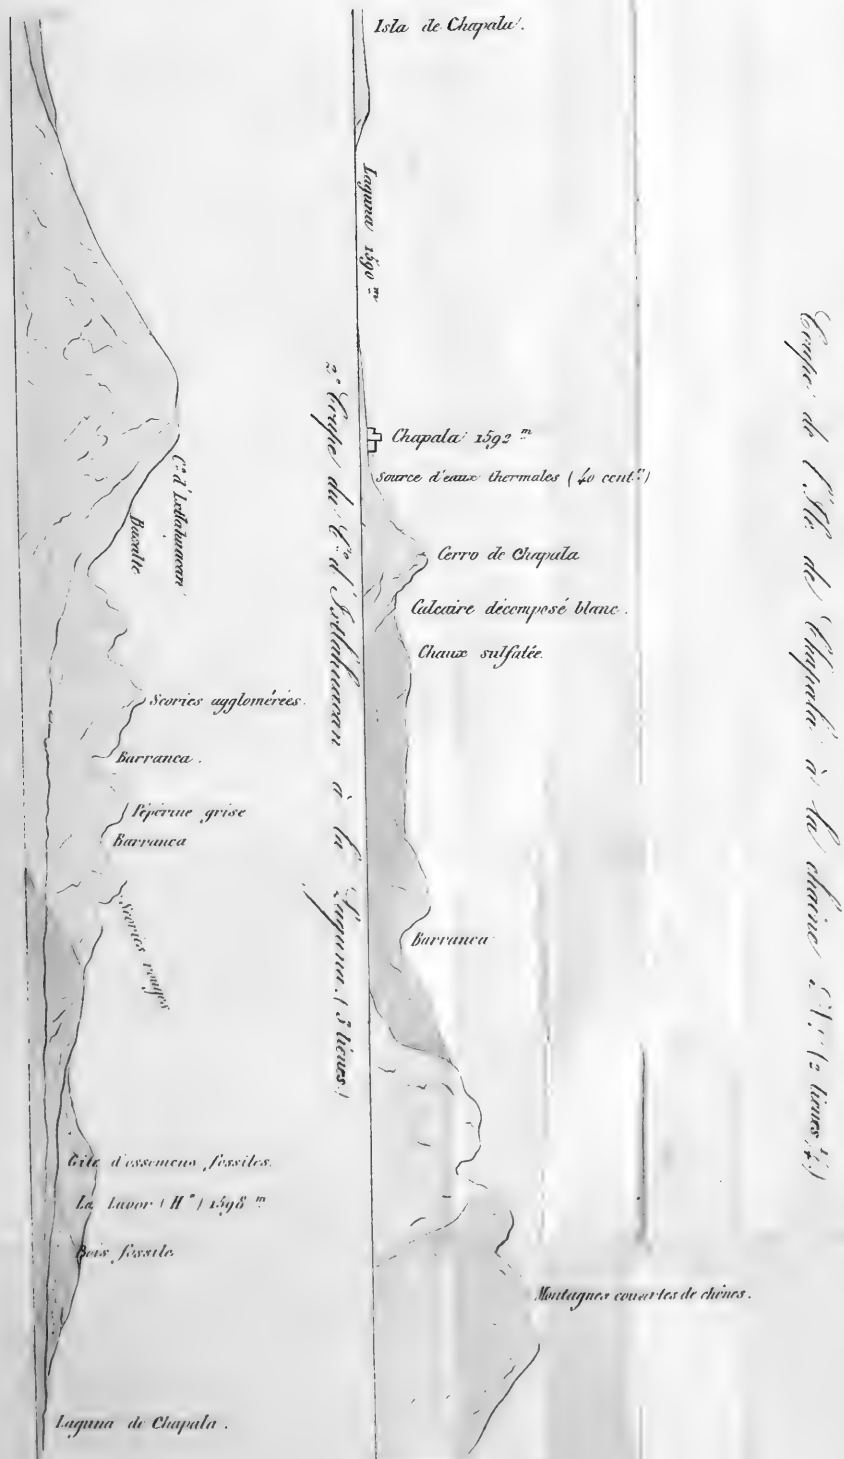 Coupe de l'Ile de Chapala à la chaine
Isla de Chapala.
Laguna 1590 m
Chapala 1592 m
Source d'eaux thermales (40 cent.)
Cerro de Chapala
Calcaire décomposé blanc.
Chaux sulfatée.
Barranca
Montagnes couvertes de chênes.
2e Coupe du Co d'Ixtlahuacan à la Laguna. (3 lieues)
Co d'Ixtlahuacan
Basalte
Scories agglomérées.
Barranca.
Pépérine grise
Barranca
Scories rouges
Gîte d'ossemens fossiles.
La Lavor (Ha) 1598 m
Bois fossile
Laguna de Chapala.